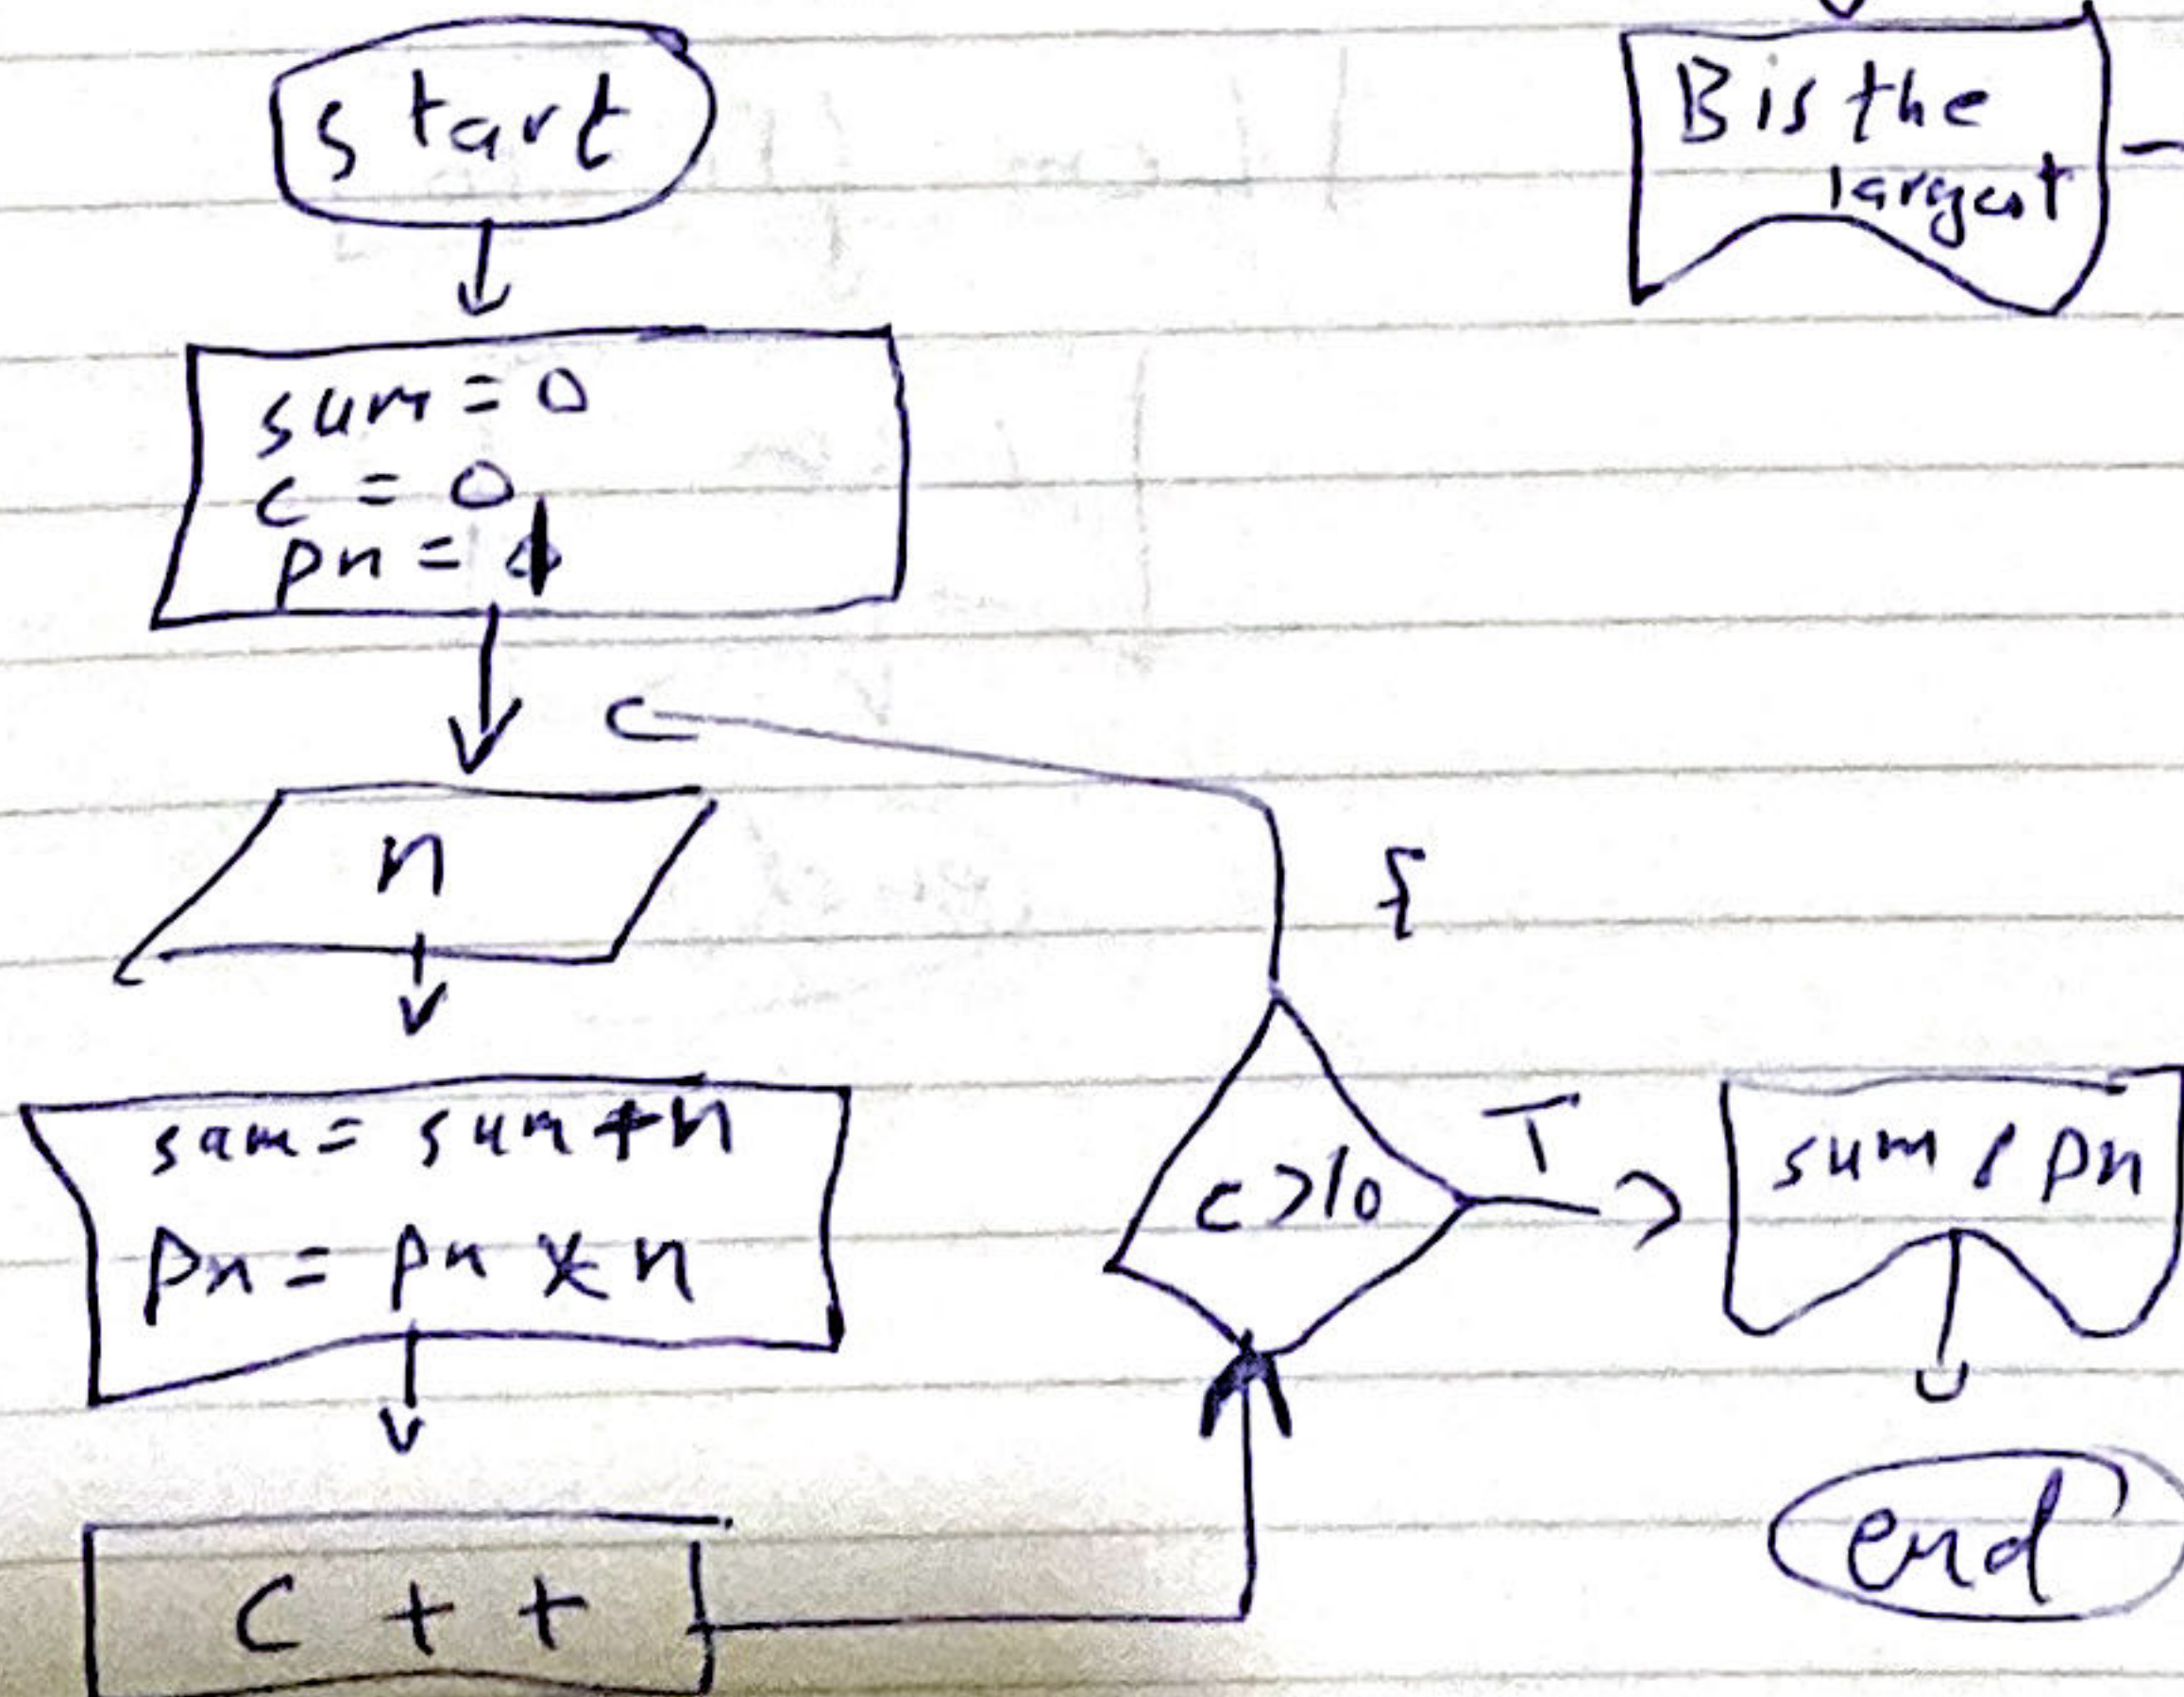 start
B is the
largest
sum = 0
c = 0
pn = 1
n
f
sum = sum + n
pn = pn * n
c > 10
T
sum , pn
C + +
end